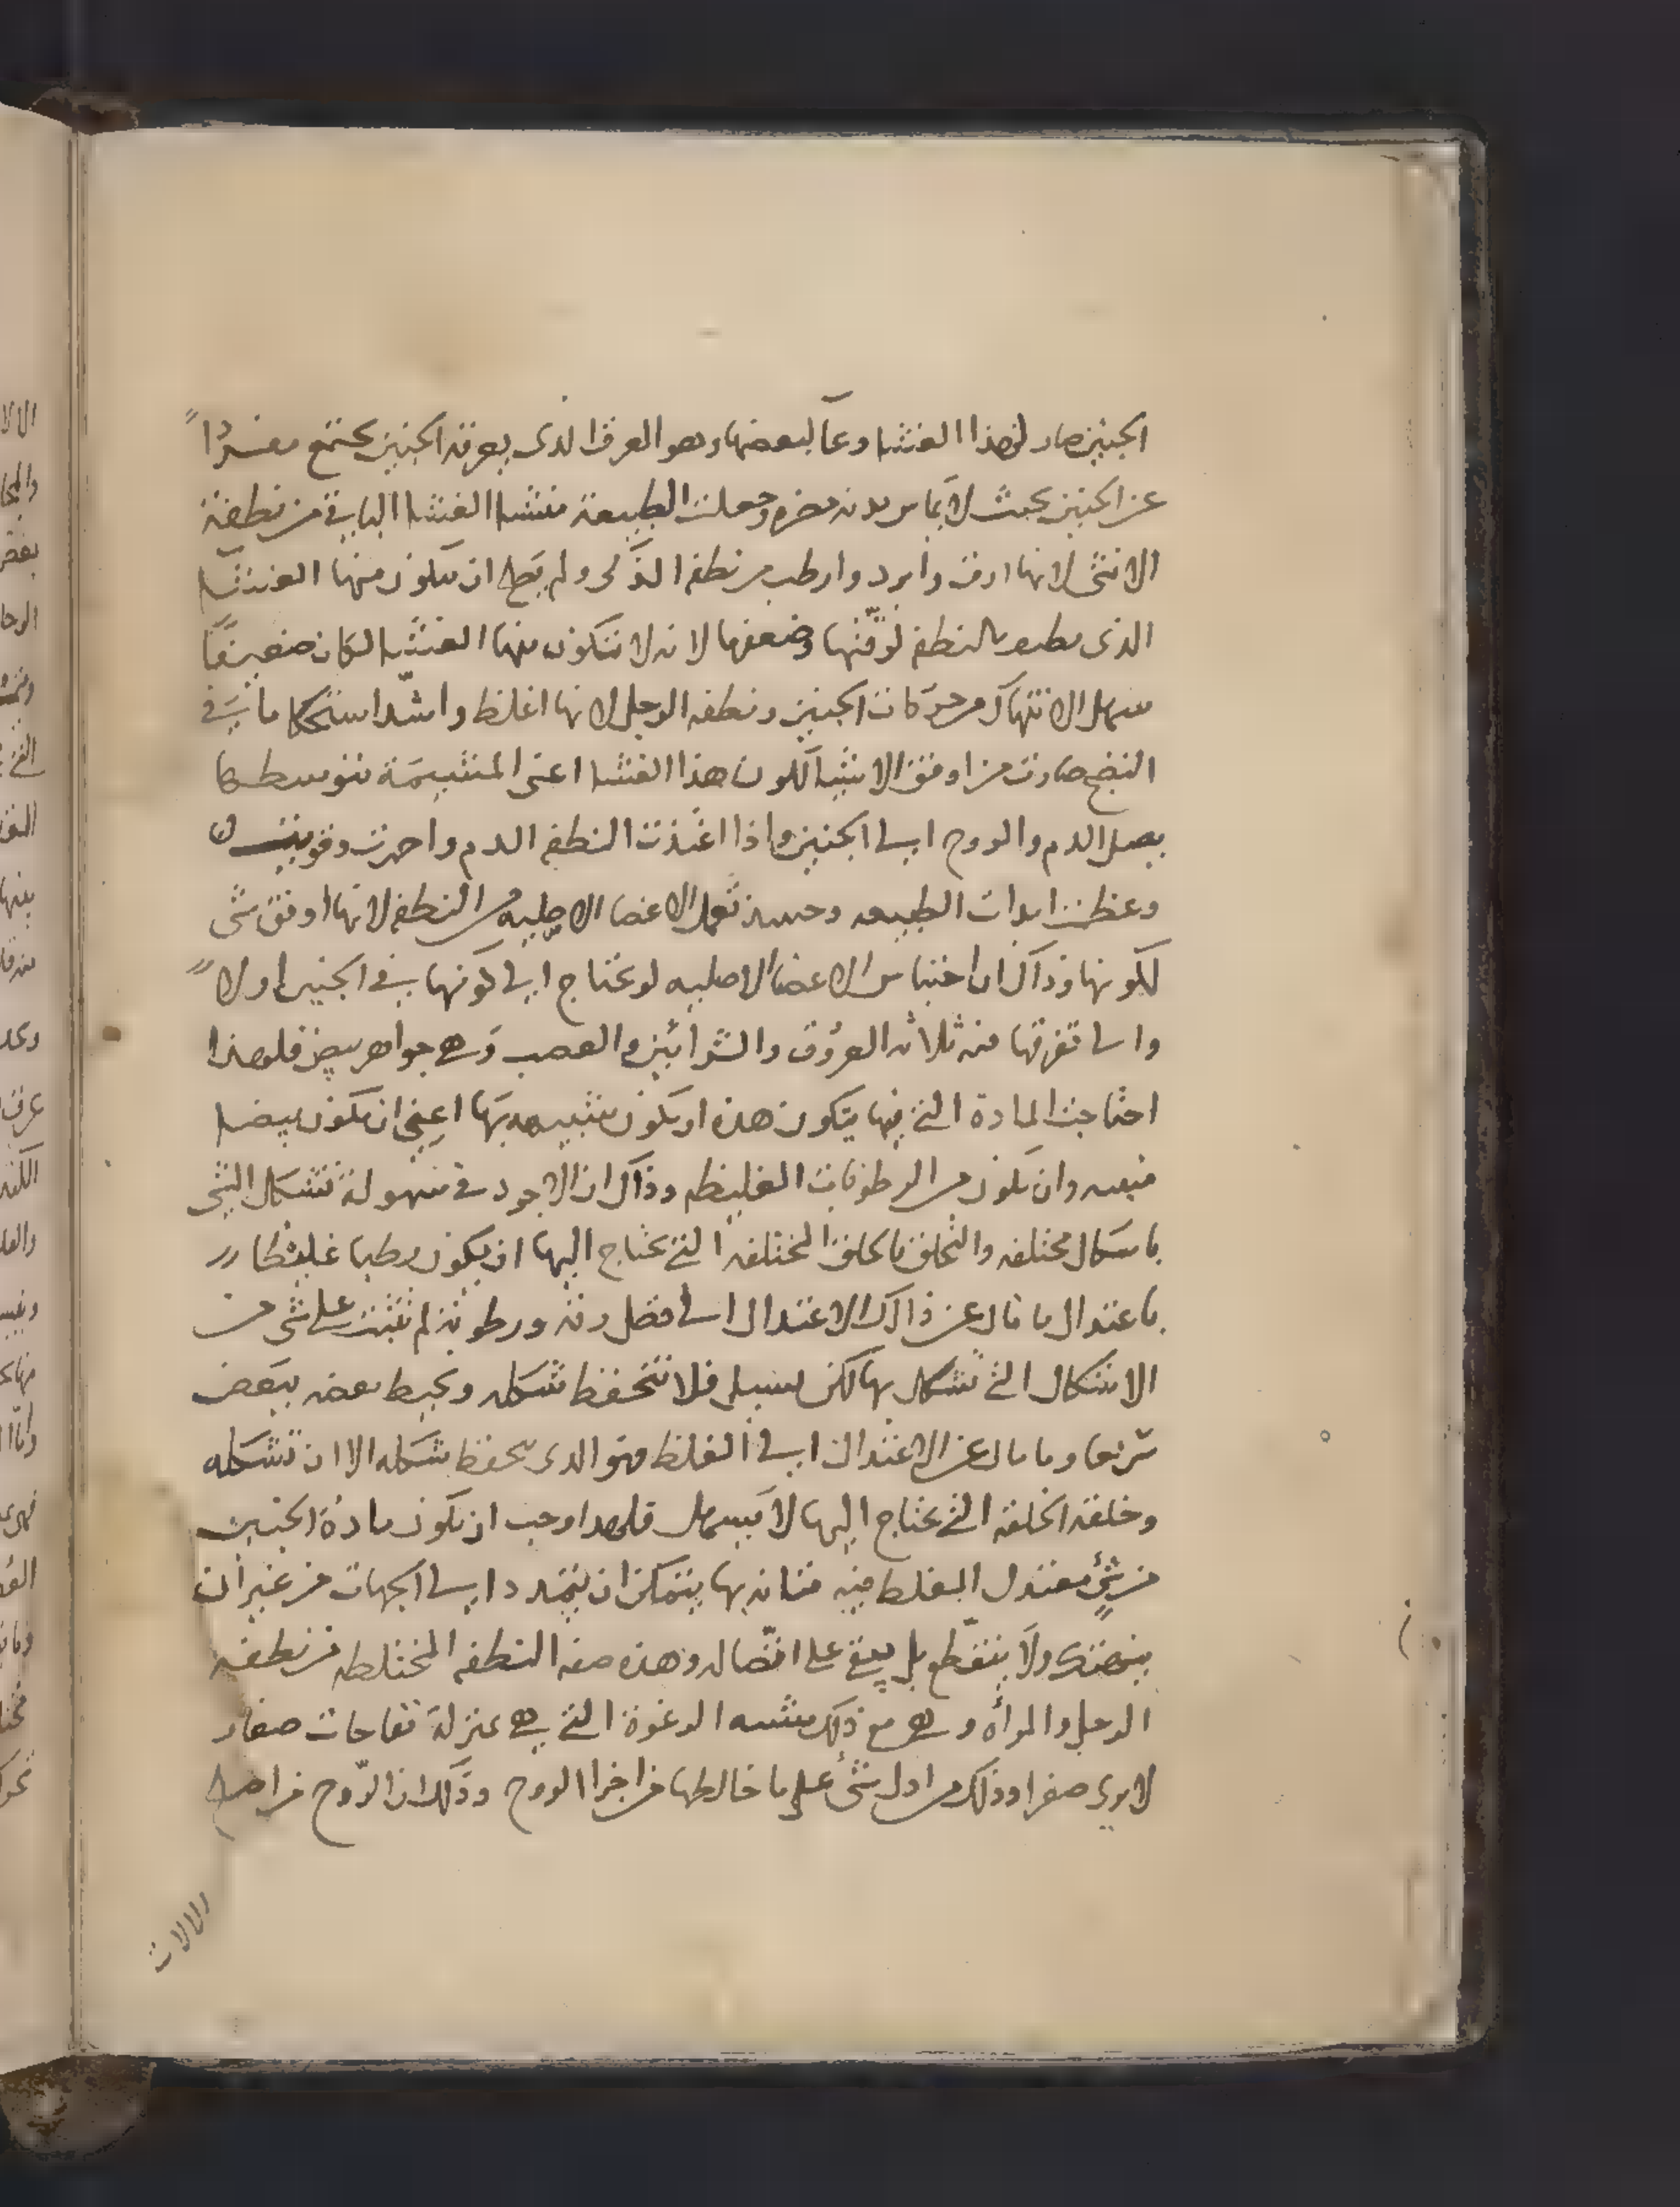 الجنين صار لهذا الغشا وعآ لبعضها وهو العرق الذى يعرقه الجنين يجتمع مفردًا
عن الجنين بحيث لا يماس بدنه فيضره وجعلت الطبيعة منشا الغشا الباقي من نطفة
الانثى لانها ارق وابرد وارطب من نطفه الذكر ولم يصلح ان يتكون منها الغشا
الذى يطيف بالنطفه لرقّتها وضعفها لانه لا تتكون منها الغشا لكان ضعيفًا
سهل الانتهاك من حركات الجنين ونطفه الرجل لانها اغلظ واشدّ استحكاما في
النضج صارت من اوفق الاشيا لكون هذا الغشا اعنى المشيمة بتوسطها
يصل الدم والروح الى الجنين واذا اغتذت النطفه الدم واحمرت وقويت
وعظمت ابدات الطبيعه وحينئذ تعمل الاعضا الاصليه من النطفه لانها اوفق شى
لكونها وذاك ان اجناس الاعضا الاصليه لو يحتاج الى كونها في الجنين اولاً
والى تفرقها فيه ثلاثه العرُوق والشرائين والعصب وهي جواهر بيض فلهذا
احتاجت المادة التي فيها يتكون هذه ان يكون شبيهه بها اعني ان تكون بيضا
وان تكون من الرطوبات الغليظه وذاك ان الاجود في سهولة تشكل الشى
باشكال مختلفه والتخلق بالخلق المختلفه التي يحتاج اليها ان يكون رطبا غليظا
باعتدال ما مال عن ذالك الاعتدال الى فضل رقه ورطوبة لم تثبت على شى من
الاشكال التي تشكل بها لكن يسيل فلا تتحفظ شكله ويحيط بعضه ببعض
سريعا وما مال عن الاعتدال الى الغلظ فهو الذى يحفظ شكله الا ان تشكله
وخلقه الخلقه التي يحتاج اليها لا يسهل فلهذا وجب ان يكون مادة الجنين
من شئٍ معتدل الغلظ فيه متانه بها يتمكن ان يتمدد الى الجهات من غير ان
ينهتك ولا ينقطع بل يبقى على اتصاله وهذه صفه النطفه المختلطه من نطفه
الرجل والمرأه وهي مع ذلك مشبه الرغوة التي هي بمنزلة نفاحات صغار
لا يرى صغرا وذلك من ادل شئ على ما خالطها من اجزا الروح وذلك ان الرّوح من اصلح
الالات